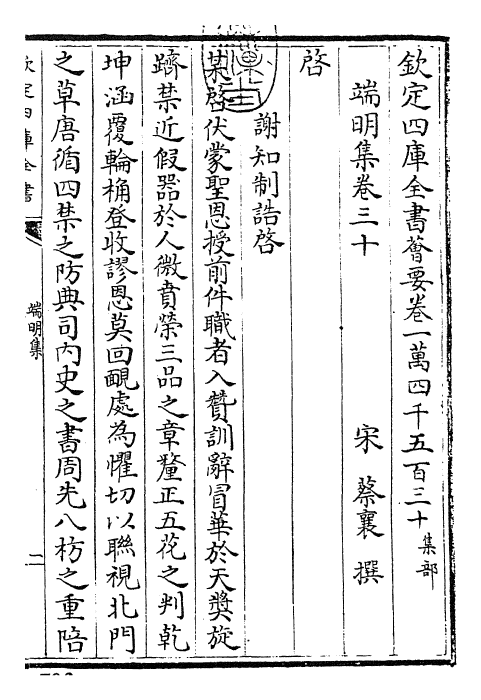 欽定四庫全書薈要卷一萬四千五百三十集部
端明集卷三十
宋 蔡襄 撰
啓
謝知制誥啓
某啓伏蒙聖恩授前件職者入贊訓辭冒華於天奬旋
躋禁近假器於人微賁榮三品之章釐正五花之判乾
坤涵覆輪桷登收謬恩莫回靦處為懼切以聯視北門
之草唐循四禁之防典司内史之書周先八枋之重陪
欽定四庫全書
端明集
二